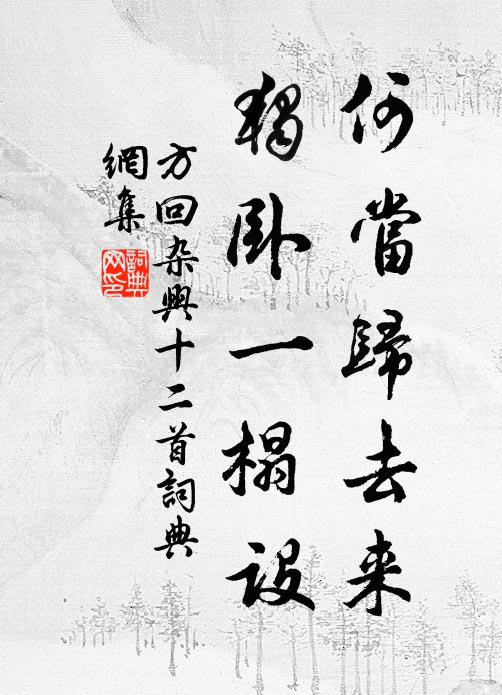 何當歸去来
獨卧一榻設
方回杂興十二首詞典
網集
詞典
网印